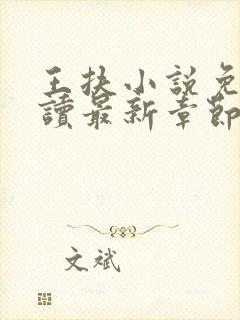 王抉小說免
讀最新章節
文斌